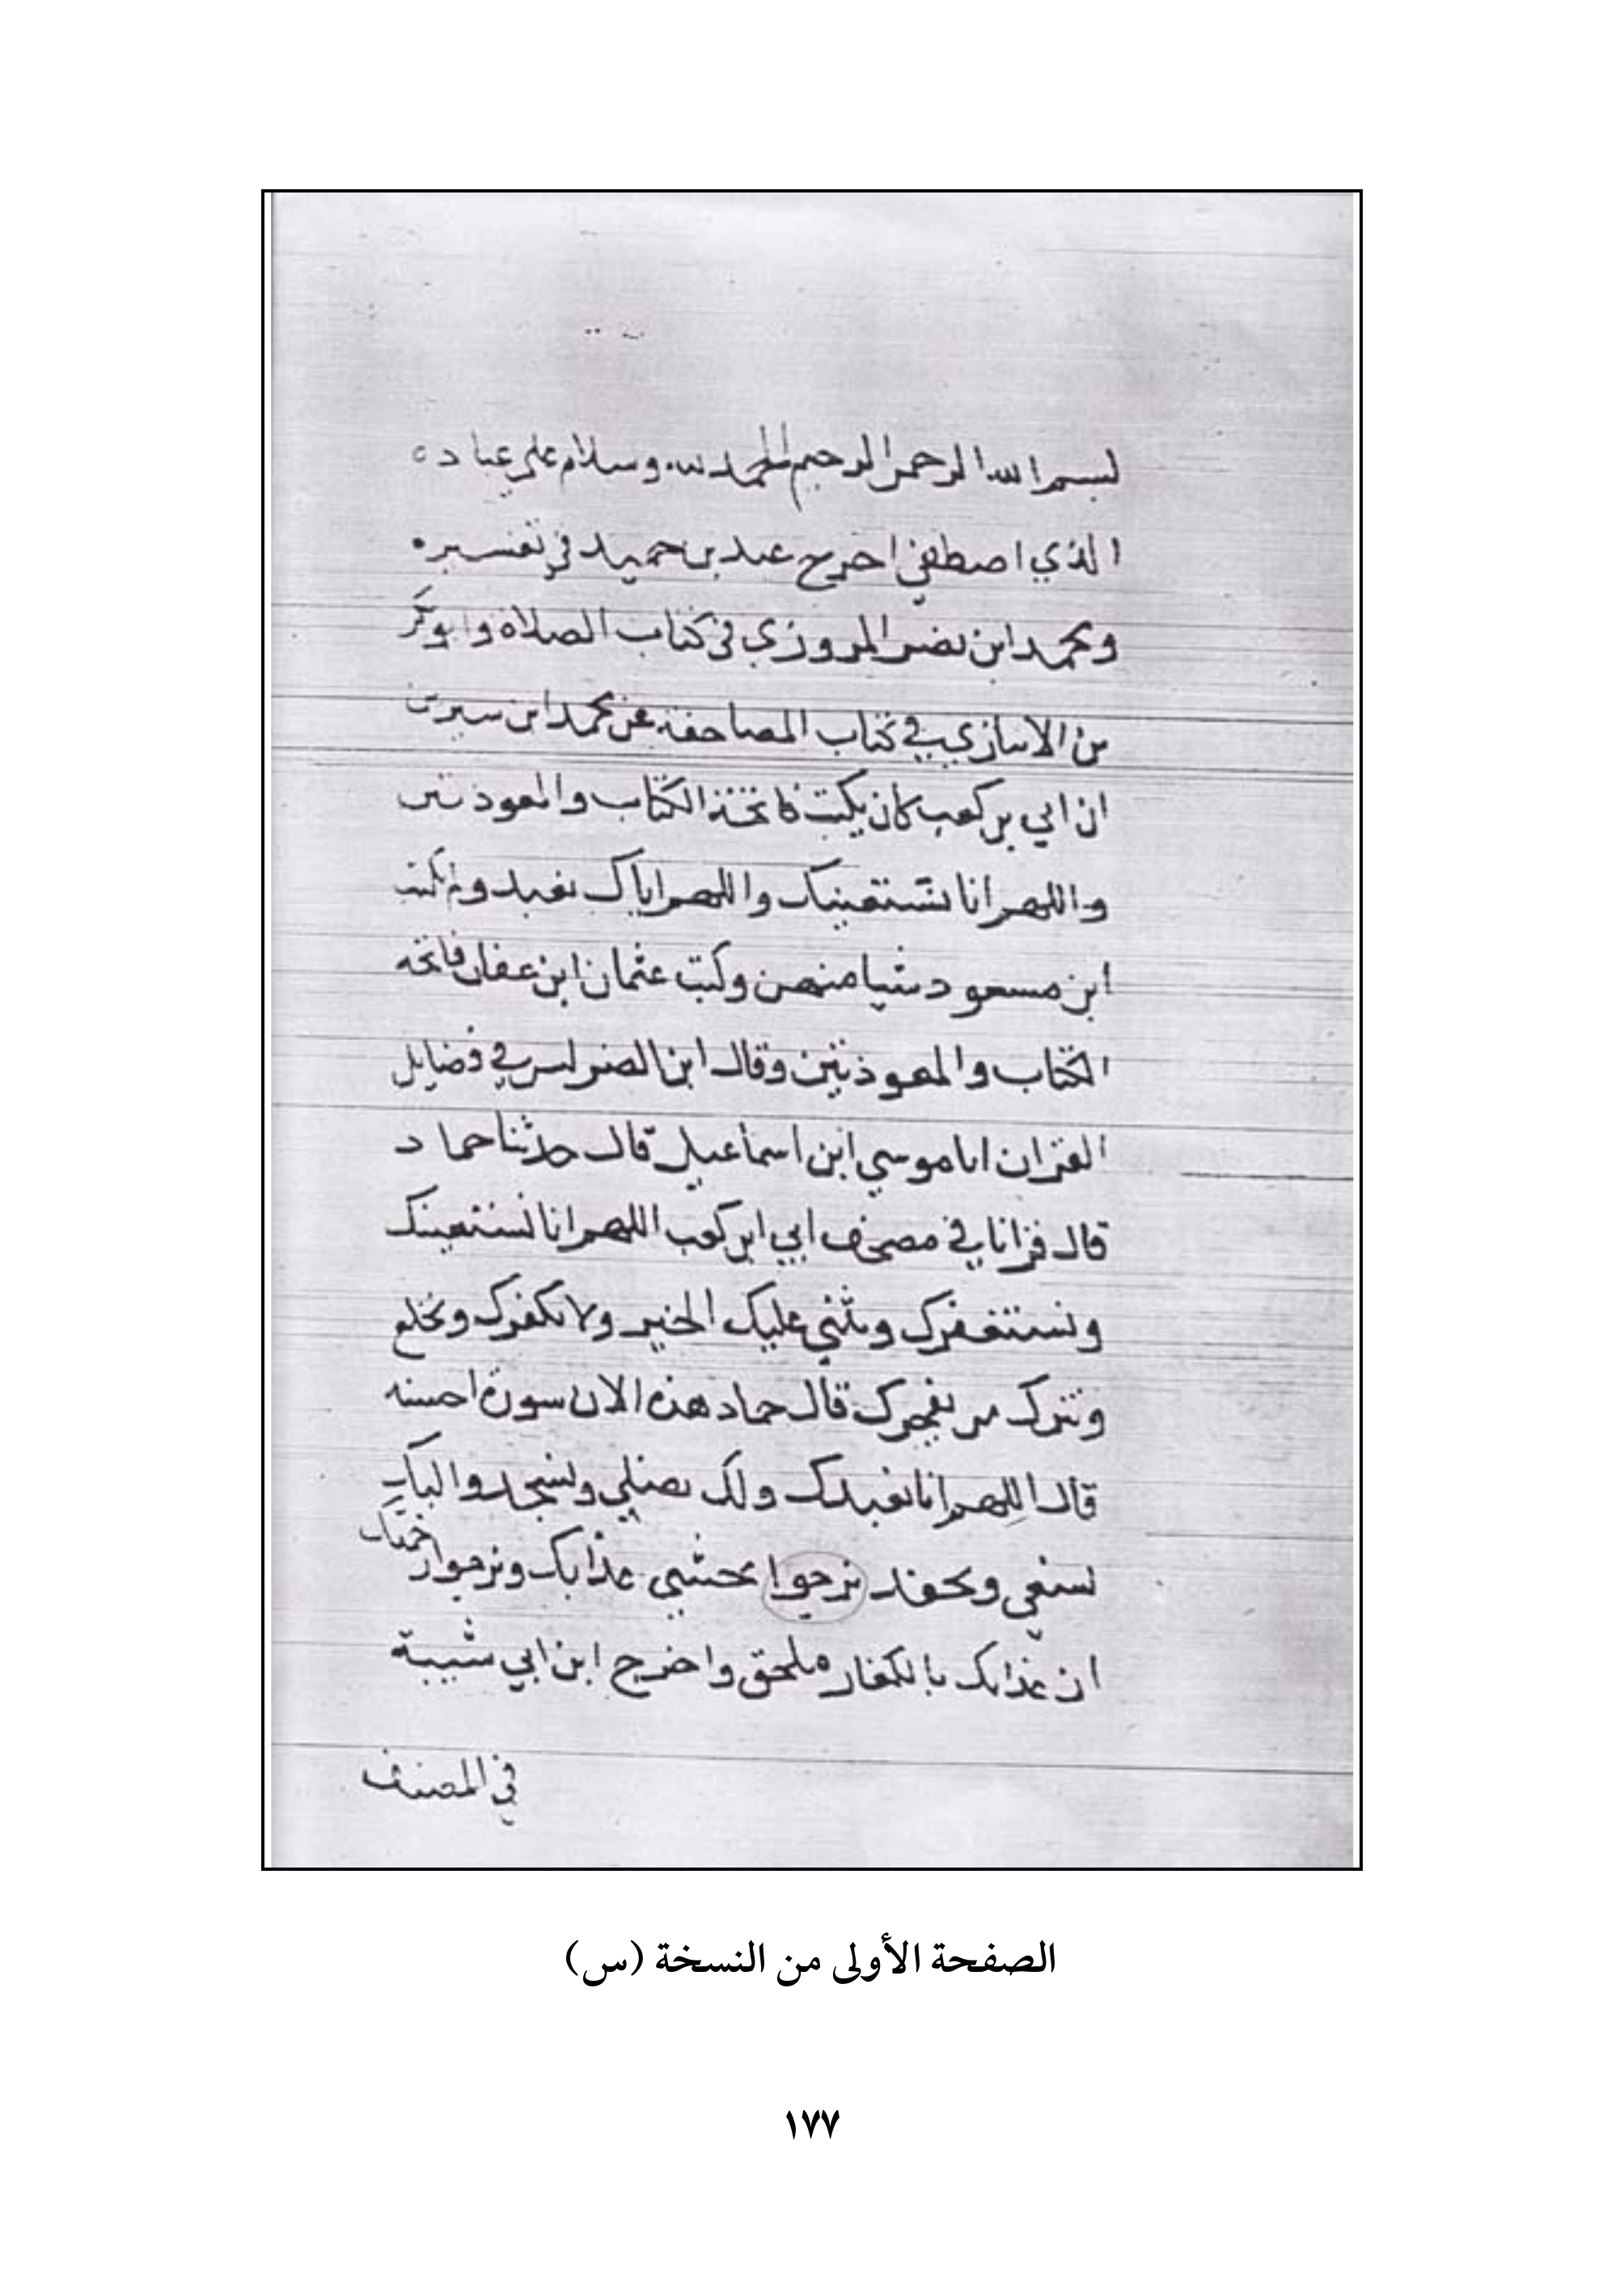 بسم الله الرحمن الرحيم الحمد لله وسلام على عباده
الذي اصطفى اخرج عبد بن حميد في تفسيره
ومحمد ابن نصر المروزي في كتاب الصلاة وابو بكر
بن الانبازي في كتاب المصاحف عن محمد ابن سيرين
ان ابي بن كعب كان يكتب فاتحة الكتاب والمعوذتين
واللهم انا نستعينك واللهم اياك نعبد ولم يكتب
ابن مسعود شيا منهن وكتب عثمان ابن عفان فاتحه
الكتاب والمعوذتين وقال ابن الضريس في فضايل
القران انا موسي ابن اسماعيل قال حدثنا حماد
قال قرانا في مصحف ابي ابن كعب اللهم انا نستعينك
ونستغفرك ونثني عليك الخير ولا نكفرك ونخلع
ونترك من يفجرك قال حماد هذه الان سورة احسبه
قال اللهم انا نعبدك ولك نصلي ونسجد واليك
نسعى ونحفد نرجوا نخشي عذابك ونرجوا رحمتك
ان عذابك بالكفار ملحق واخرج ابن ابي شيبة
في المصنف
الصفحة الأولى من النسخة (س)
١٧٧